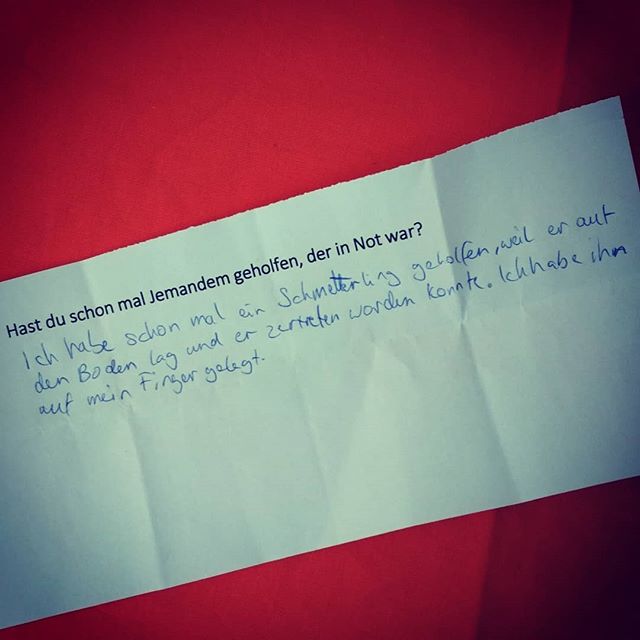 Hast du schon mal Jemandem geholfen, der in Not war?
Ich habe schon mal ein Schmetterling geholfen, weil er auf
den Boden lag und er zertreten worden konnte. Ich habe ihn
auf mein Finger gelegt.